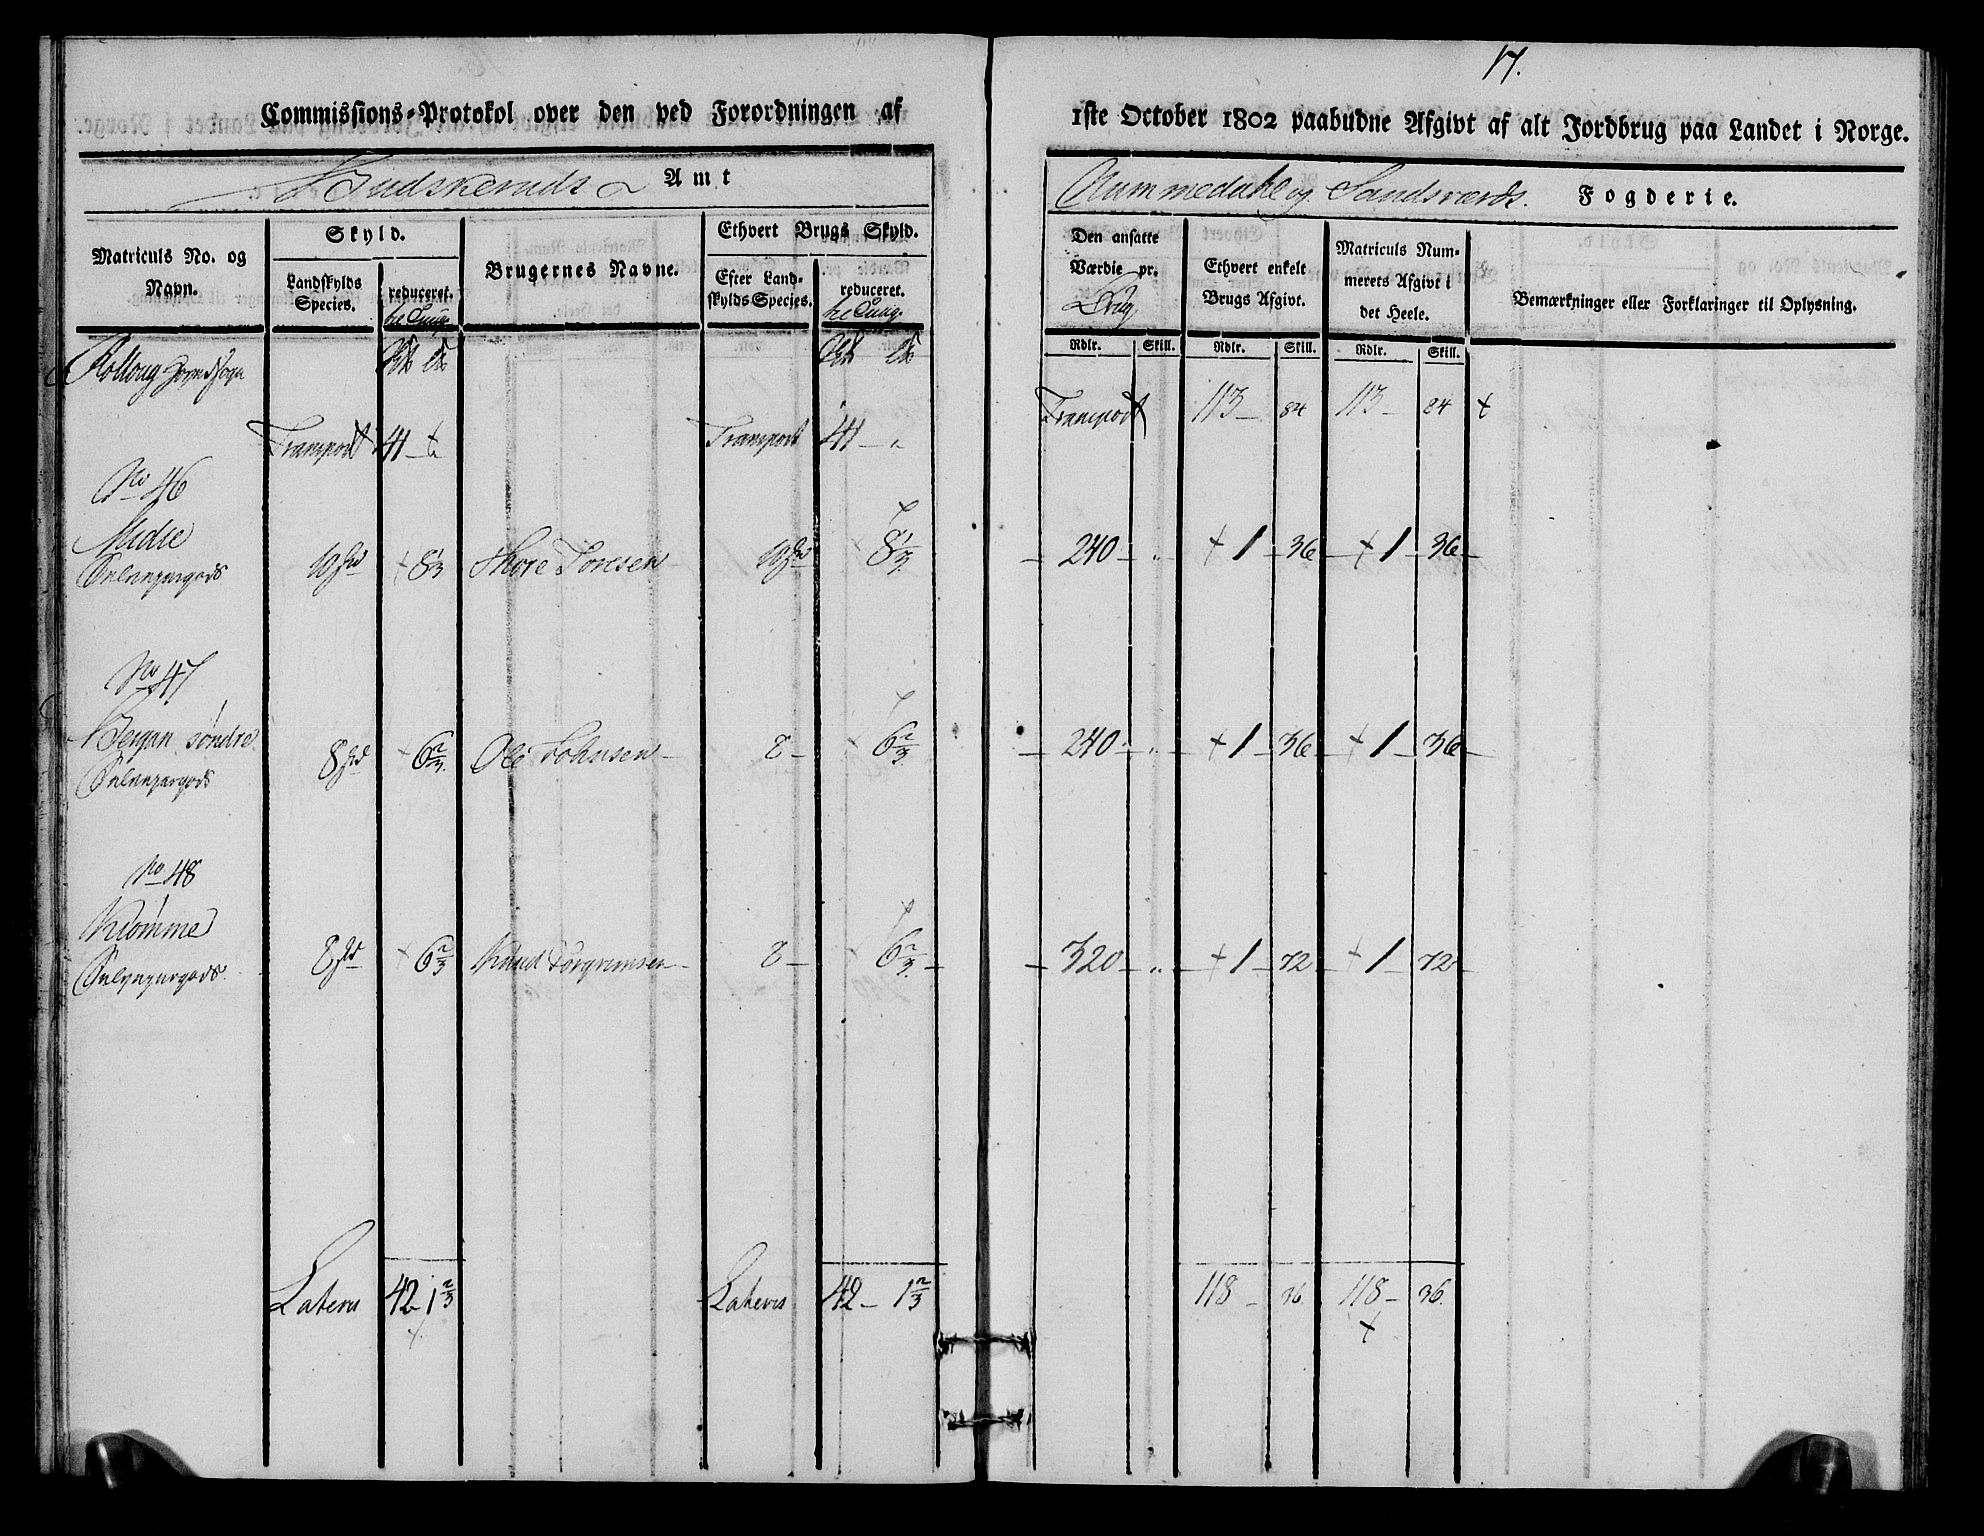 17.
Commissions-Protokol over den ved Forordningen af 1ste October 1802 paabudne Afgivt af alt Jordbrug paa Landet i Norge.
Budskeruds Amt
Nummedahl og Sandsværds. Fogderie.
Matriculs No. og Navn.
Skyld.
Landskylds Species.
reduceret.
Brugernes Navne.
Ethvert Brugs Skyld.
Efter Landskylds Species.
reduceret.
Den ansatte Værdie pr.
Ethvert enkelt Brugs Afgivt.
Matriculs Nummerets Afgivt i det Heele.
Bemærkninger eller Forklaringer til Oplysning.
Rdlr. Skill. Rdlr. Skill. Rdlr. Skill.
Rolloug
Transport 41 Transport 41 – " Transport 113 – 84 113 – 84
No 46
Midie
8 1/3 Thore Toresen 8 1/3 – 240 – " – + 1 – 36 – + 1 – 36 –
No 47
Bergan søndre
8 + 6 2/3 Ole Johnsen – 8 – 6 2/3 – 240 – " – + 1 – 36 – + 1 – 36 –
No 48
Kiømme
8 + 6 2/3 Knud Torgrimsen – 8 – 6 2/3 – 320 – " – + 1 – 72 – + 1 – 72 –
Lateris 42 – 1 2/3 Lateris 42 – 1 2/3 118 – 36. 118 – 36.